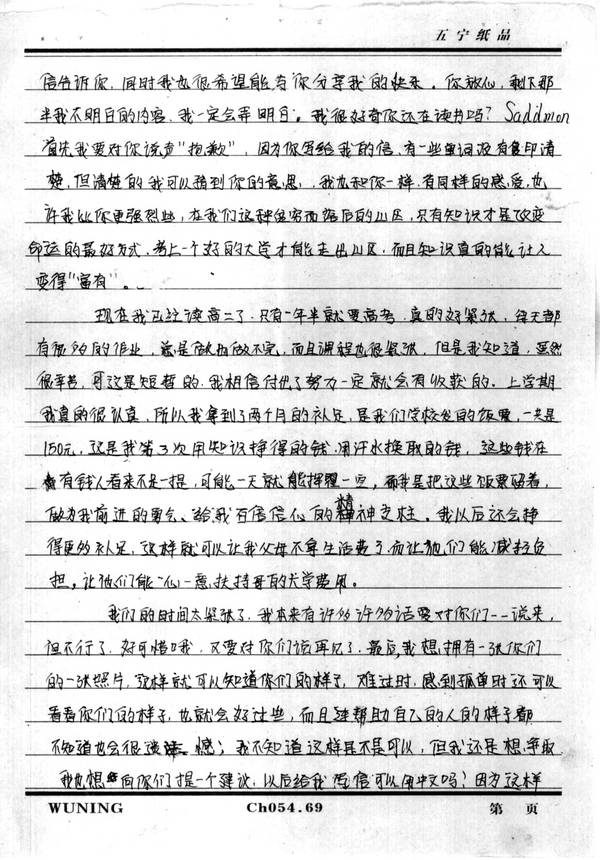 五宁纸品
信告诉你,同时我也很希望能有你分享我的快乐。你放心,剩下那
半我不明白的内容,我一定会弄明白。我很好奇你还在读书吗?Saddmon
首先我要对你说声"抱歉",因为你写给我的信,有一些单词没有复印清
楚,但清楚的我可以猜到你的意思,我也和你一样,有同样的感受,也
许我比你更强烈些,在我们这种贫穷而落后的山区,只有知识才是改变
命运的最好方式,考上一个好的大学才能走出山区,而且知识真的能让人
变得"富有"。
现在我已经读高二了,只有一年半就要高考,真的好紧张,每天都
有很多的作业,总是做也做不完,而且课程也很紧张,但是我知道,虽然
很辛苦,可这是短暂的,我相信付出了努力一定就会有收获的。上学期
我真的很认真,所以我拿到了两个月的补足,是我们学校发的饭票,一共是
150元,这是我第3次用知识挣得的钱,用汗水换取的钱,这些钱在
有钱人看来不足一提,可能一天就能挥霍一空,而我是把这些饭票留着,
做为我前进的勇气、给我百倍信心的精神支柱。我以后还会挣
得更多补足,这样就可以让我父母不拿生活费了,而让他们能减轻负
担,让他们能一心一意扶持哥的大学费用。
我们的时间太紧张了,我本来有许多许多话要对你们一一说来,
但不行了,好可惜哦,又要对你们说再见了,最后,我想拥有一张你们
的一张照片,这样就可以知道你们的样子,难过时,感到孤单时还可以
看看你们的样子,也就会好过些,而且连帮助自己的人的样子都
不知道也会很遗憾;我不知道这样是不是可以,但我还是想争取
我也想向你们提一个建议,以后给我写信可以用中文吗?因为这样
WUNING Ch054.69 第 页